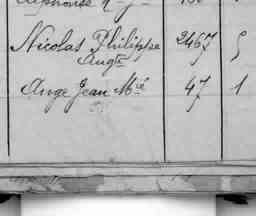 Alphonse
Nicolas Philippe 2467 5
Augte
Ange Jean Mie 47 1